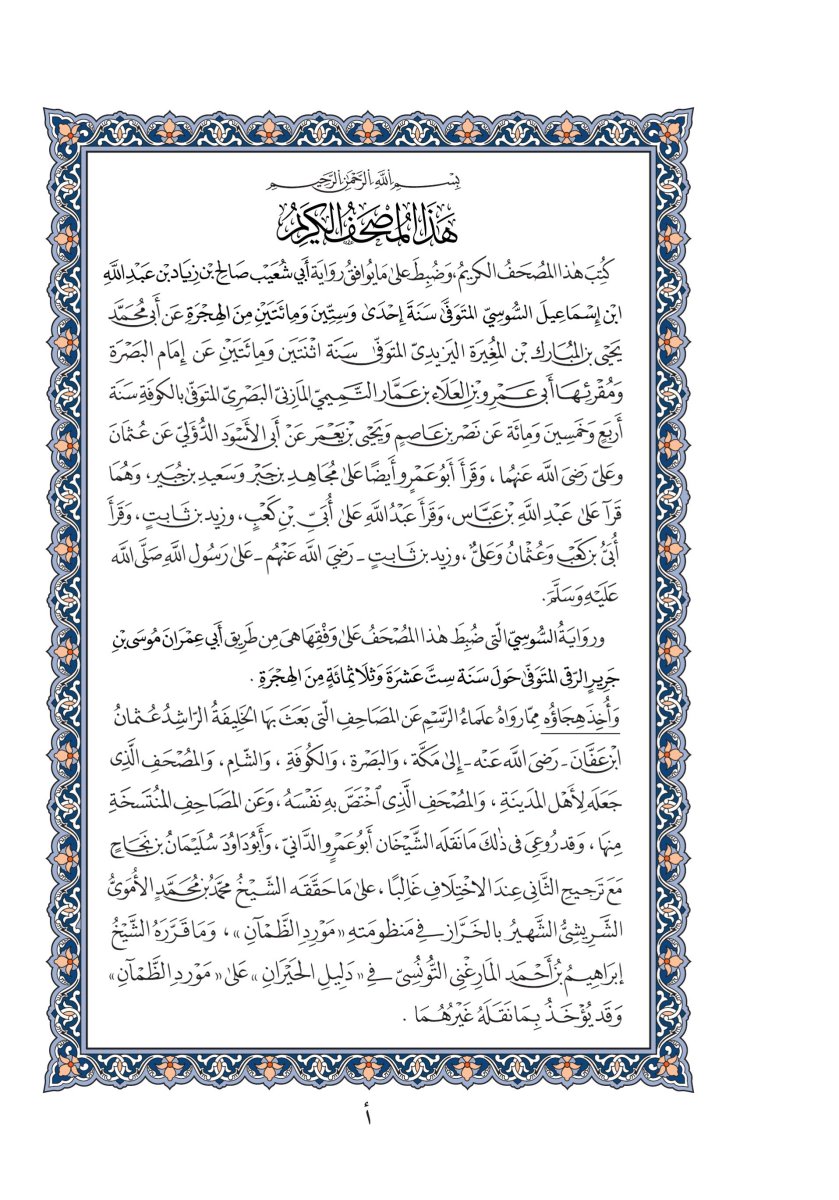 بِسْمِ اللَّهِ الرَّحْمَٰنِ الرَّحِيمِ
هَذَا المُصْحَفُ الكَرِيمُ
كُتِبَ هٰذا المُصْحَفُ الكريمُ، وَضُبِطَ على مَايُوافقُ رِوَايَة أبي شُعَيْب صَالِح بْن زِيَاد بن عَبدِ اللَّهِ
ابن إِسْمَاعِيلَ السُّوسِيّ المتَوَفَّىٰ سَنَةَ إِحْدَىٰ وَسِتِّينَ وَمِائَتَيْنِ مِنَ الهِجْرَةِ عَن أبي مُحَمَّد
يَحْيَىٰ بن المُبَارك بْن المُغِيرَة اليَزِيدِيّ المتَوَفَّىٰ سَنَة اثْنَتَين وَمِائَتَيْنِ عَن إِمَام البَصْرَة
وَمُقْرِئِهَا أَبِي عَمْرِو بْن العَلَاءِ بن عَمَّار التَّمِيمِيّ المَازِنِيّ البَصْرِيّ المتَوَفَّىٰ بالكُوفَةِ سَنَةَ
أَرْبَعٍ وَخَمْسِينَ وَمِائَة عَن نَصْر بن عَاصِمٍ وَيَحْيَىٰ بْن يَعْمَر عَنْ أَبي الأَسْوَد الدُّؤَلِيّ عَن عُثمَانَ
وعَليّ رَضيَ اللَّه عَنْهُما ، وَقَرَأ أَبُو عَمْرٍو أَيضًا عَلىٰ مُجَاهِدِ بن جَبْر وَسَعِيدِ بن جُبَير، وَهُمَا
قرَآ عَلىٰ عَبْدِ اللَّهِ بْن عَبَّاسٍ، وَقَرَأَ عَبْدُ اللَّهِ عَلىٰ أُبَيِّ بْنِ كَعْبٍ، وزيد بن ثَابتٍ، وَقَرَأَ
أُبَيُّ بن كَعْبٍ وَعُثْمانُ وَعَلِيٌّ ، وزيد بن ثَابتٍ ـ رَضيَ اللَّه عَنْهُم ـ عَلىٰ رَسُول اللَّهِ صَلَّى اللَّه
عَلَيْهِ وَسَلَّمَ.
وروَايَةُ السُّوسِيّ الّتي ضُبِطَ هٰذا المُصْحَفُ عَلىٰ وَفْقِهَا هيَ مِن طَرِيق أبي عِمرَانَ مُوسَى بْنِ
جَرِيرٍ الرَّقي المتَوَفَّىٰ حَولَ سَنَة سِتَّ عَشرَةَ وَثَلَاثِمائَةٍ مِنَ الهِجْرَةِ .
وَأُخِذَ هِجَاؤُه مِمّا رَوَاهُ عُلَماءُ الرَّسْمِ عَن المَصَاحِفِ الّتي بَعَثَ بِهَا الخَلِيفَةُ الرَّاشِدُ عُثمَانُ
ابن عَفَّانَ ـ رَضيَ اللَّه عَنْه ـ إِلىٰ مَكَّة ، وَالبَصْرَة ، وَالكُوفَةِ ، وَالشَّامِ ، وَالمُصْحَفِ الَّذِي
جَعَلَه لِأَهْلِ المَدِينَةِ ، وَالمُصْحَفِ الَّذِي اخْتَصَّ بِهِ نَفْسَهُ ، وَعَنِ المَصَاحِفِ المُنْتَسَخَةِ
مِنهَا ، وَقَد رُوعِيَ في ذٰلكَ مَا نَقَلَه الشَّيْخَان أَبُو عَمْرٍو الدَّانِيّ ، وَأَبُو دَاوُدَ سُلَيْمَانُ بن نَجَاحٍ
مَعَ تَرجِيحِ الثَّاني عِندَ الاخْتِلَافِ غَالِبًا ، عَلىٰ مَا حَقَّقَه الشَّيْخُ مُحَمَّدُ بْنُ مُحَمَّدٍ الأُمَوِيُّ
الشَّرِيشِيُّ الشَّهِيرُ بالخَرَّاز في مَنظومَتهِ «مَوْرِدِ الظَّمْآنِ» ، وَمَا قَرَّرَهُ الشَّيْخُ
إبرَاهِيمُ بْنُ أَحْمَد المَارِغْنِي التُّونُسِيّ في «دَلِيلِ الحَيْرَانِ» عَلىٰ «مَوْرِدِ الظَّمْآنِ»
وَقَد يُؤْخَذُ بِمَا نَقَلَهُ غَيْرُهُمَا .
أ